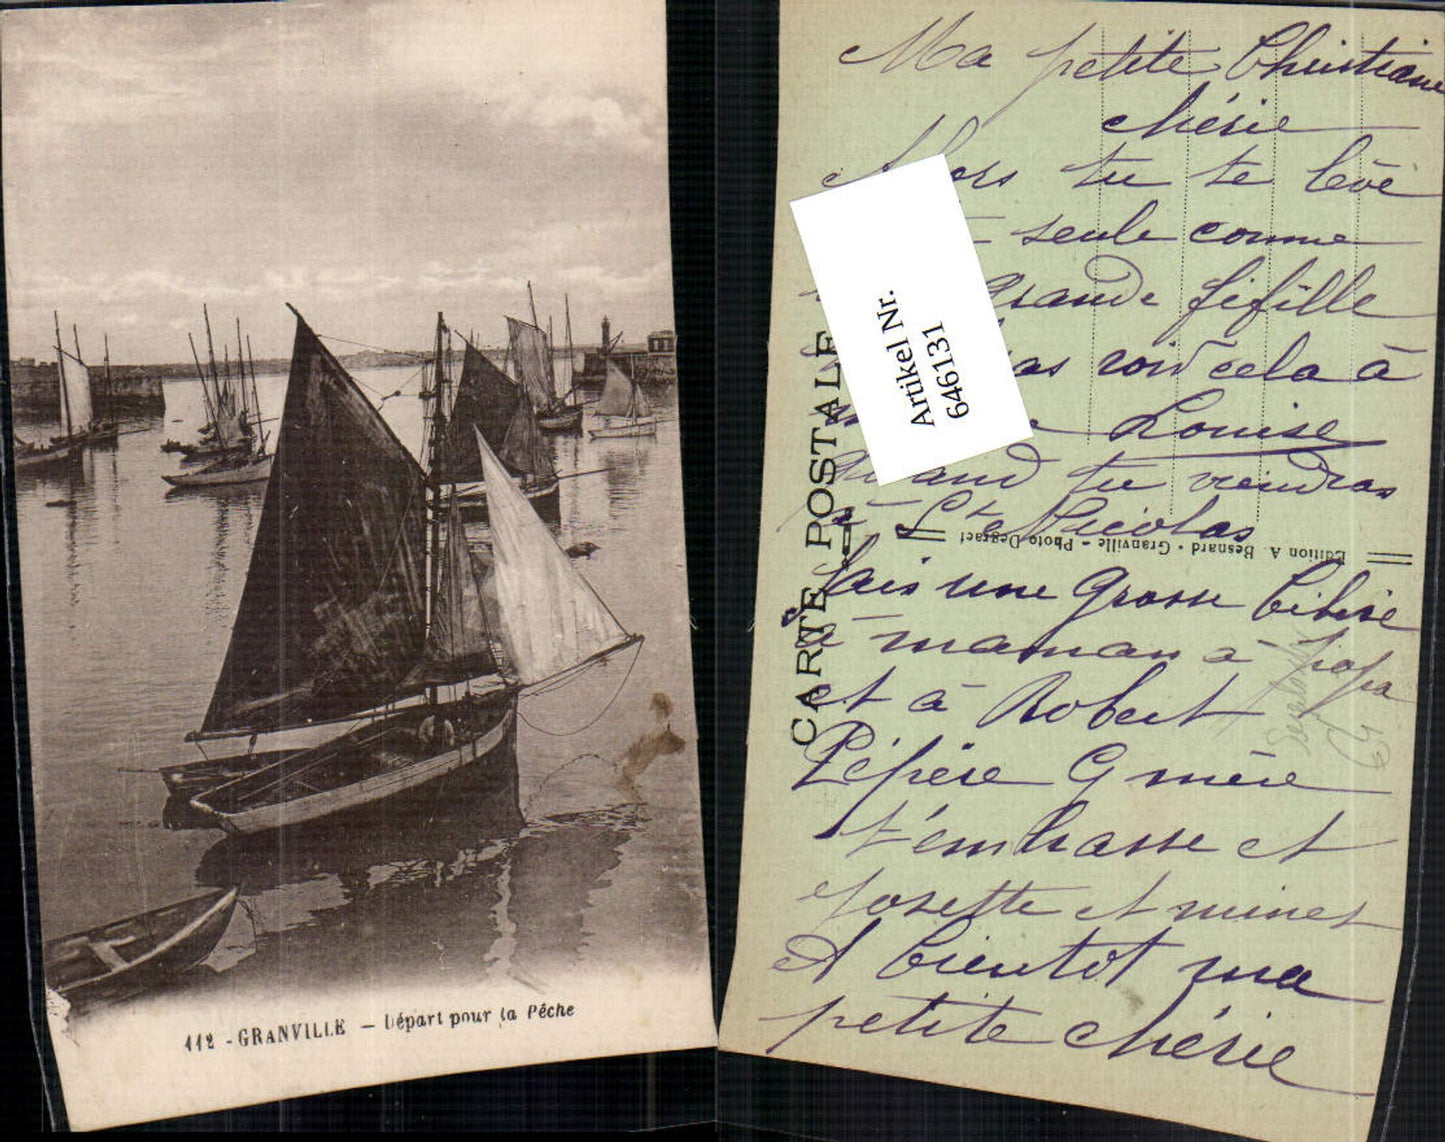 112 - GRANVILLE - Départ pour la Pêche
Ma petite Christiane
chérie
Alors tu te lève
seule comme
grande fifille
pas voir cela à
Louise
quand tu viendras
à St Nicolas
fais une grosse bibise
à maman à papa
et à Robert
Pépère G mère
t'embrasse et
Josette et minet
A bientot ma
petite chérie
CARTE POSTALE
Edition A. Besnard - Granville - Photo Degraef
Artikel Nr.
646131